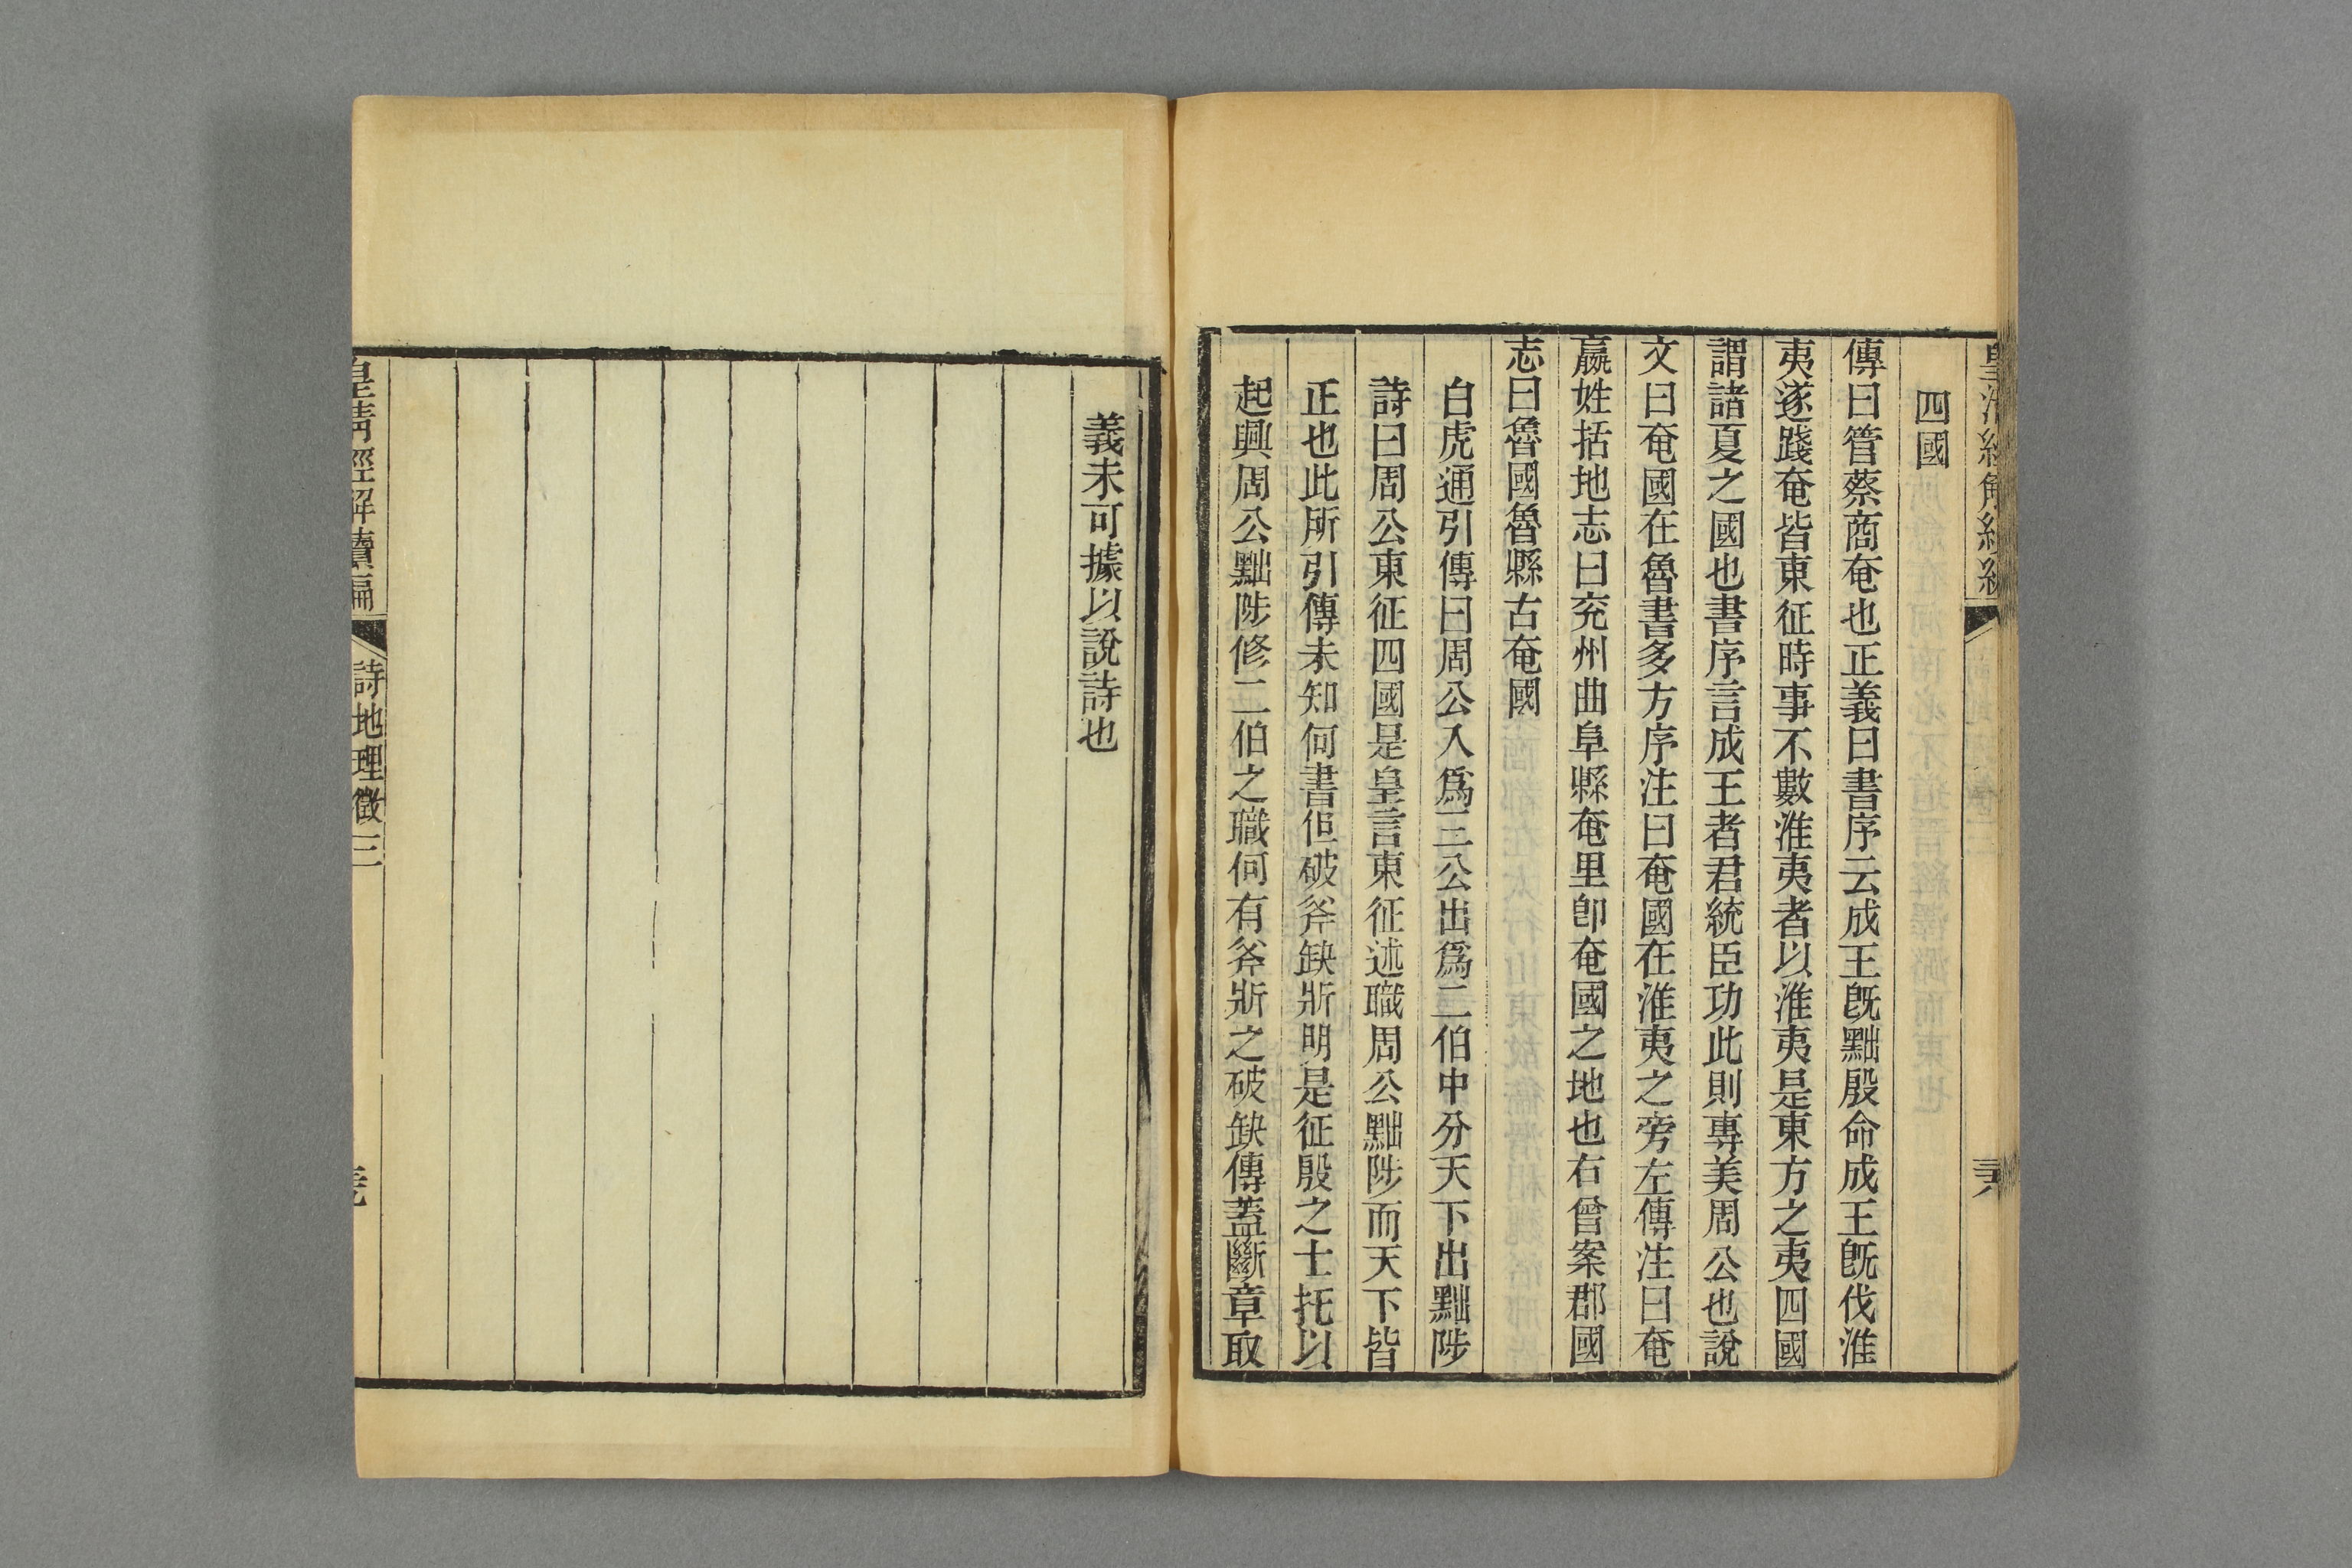 四國
傳曰管蔡商奄也正義曰書序云成王旣黜殷命成王旣伐淮
夷遂踐奄皆東征時事不數淮夷者以淮夷是東方之夷四國
謂諸夏之國也書序言成王者君統臣功此則專美周公也說
文曰奄國在魯書多方序注曰奄國在淮夷之旁左傳注曰奄
嬴姓括地志曰兖州曲阜縣奄里卽奄國之地也右曾案郡國
志曰魯國魯縣古奄國
白虎通引傳曰周公入爲三公出爲二伯中分天下出黜陟
詩曰周公東征四國是皇言東征述職周公黜陟而天下皆
正也此所引傳未知何書但破斧缺斨明是征殷之士托以
起興周公黜陟修二伯之職何有斧斨之破缺傳蓋斷章取
義未可據以說詩也
皇清經解續編
詩地理徵三